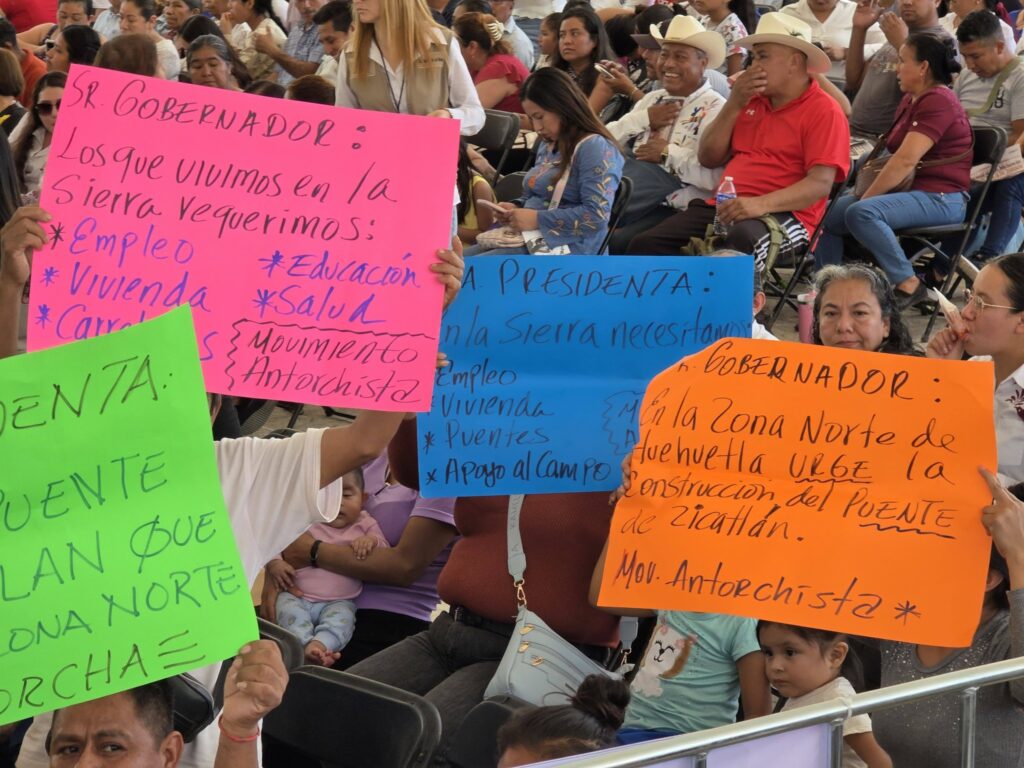 SR. GOBERNADOR:
Los que vivimos en la
Sierra requerimos:
* Empleo
* Vivienda
* Educación
* Salud
Movimiento
Antorchista
A. PRESIDENTA:
En la Sierra necesitamos
Empleo
Vivienda
* Puentes
* Apoyo al Campo
GOBERNADOR:
En la Zona Norte de
Huehuetla URGE la
Construcción del PUENTE
de Zicatlán.
Mov. Antorchista *
DENTA:
PUENTE
LAN QUE
ZONA NORTE
ORCHA